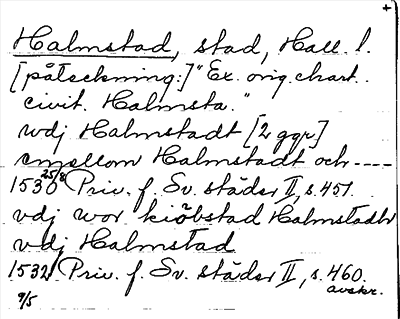 +
Halmstad, stad, Hall. l.
[påteckning:] "Ex. orig. chart.
civit. Halmsta."
wdj Halmstadt [2 ggr]
emellom Halmstadt och ----
1530 25/8 Priv. f. Sv. städer II, s. 451.
vdj wor kiöbstad Halmstadh
vdj Halmstad
1532 Priv. f. Sv. städer II, s. 460.
9/5 avskr.